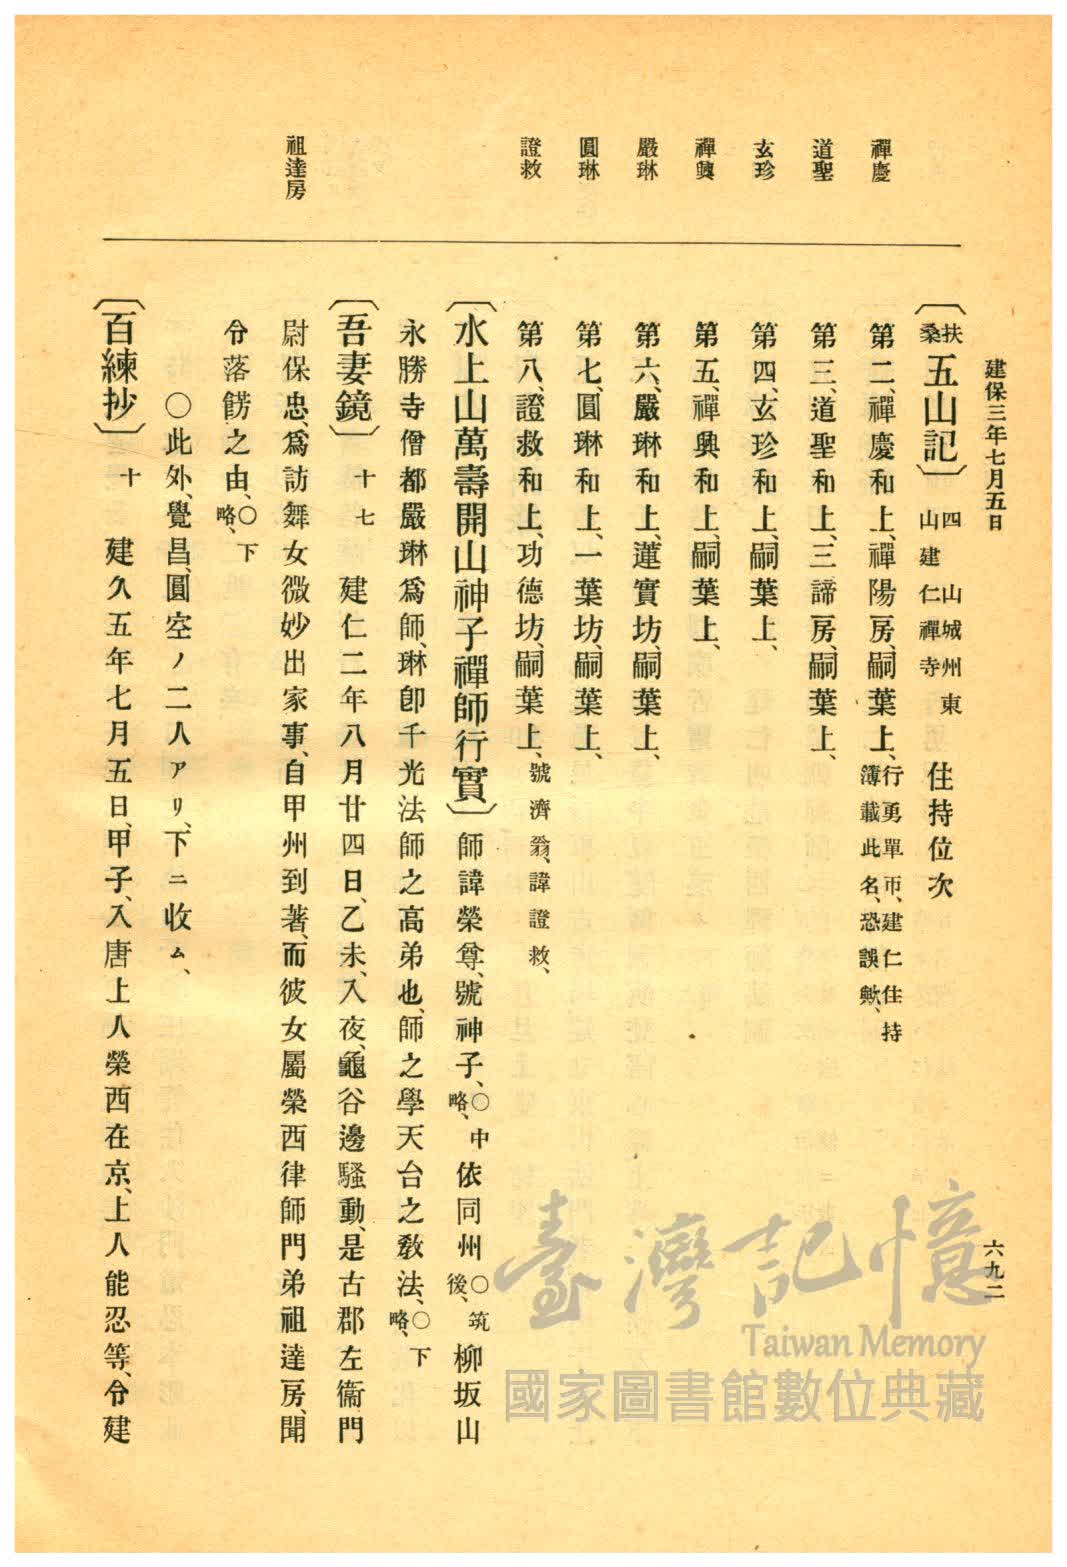 建保三年七月五日
六九二
禪慶
道聖
玄珍
禪興
嚴琳
圓琳
證救
祖達房
〔扶桑五山記〕四 山城州東山建仁禪寺 住持位次
第二、禪慶和上、禪陽房、嗣葉上、行勇單帀、建仁住持簿載此名、恐誤歟、
第三、道聖和上、三諦房、嗣葉上、
第四、玄珍和上、嗣葉上、
第五、禪興和上、嗣葉上、
第六、嚴琳和上、蓮實坊、嗣葉上、
第七、圓琳和上、一葉坊、嗣葉上、
第八、證救和上、功德坊、嗣葉上、號濟翁、諱證救、
〔水上山萬壽開山神子禪師行實〕師諱榮尊、號神子、〇中略、依同州〇筑後、柳坂山
永勝寺僧都嚴琳爲師、琳卽千光法師之高弟也、師之學天台之教法、〇下略、
〔吾妻鏡〕十七 建仁二年八月廿四日、乙未、入夜、龜谷邊騷動、是古郡左衞門
尉保忠、爲訪舞女微妙出家事、自甲州到著、而彼女屬榮西律師門弟祖達房、聞
令落餝之由、〇下略、
〇此外、覺昌、圓空ノ二人アリ、下ニ收ム、
〔百練抄〕十 建久五年七月五日、甲子、入唐上人榮西在京、上人能忍等、令建
臺灣記憶
Taiwan Memory
國家圖書館數位典藏